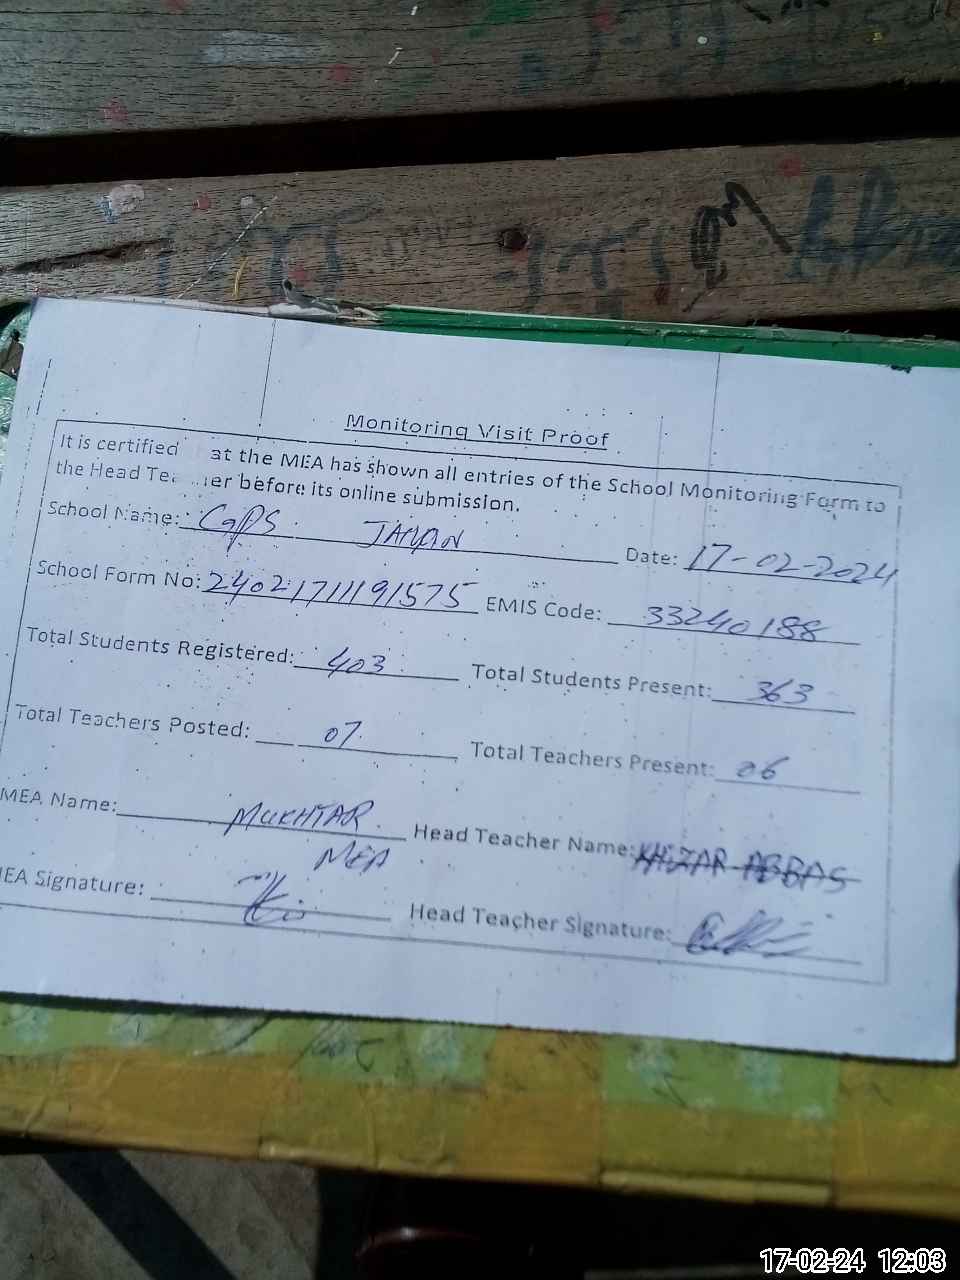 Monitoring Visit Proof
It is certified at the MEA has shown all entries of the School Monitoring Form to
the Head Tea her before its online submission.
School Name: GPS Date: 17-02-2024
School Form No: 24021711191575 EMIS Code: 33240188
Total Students Registered: 403 Total Students Present: 363
Total Teachers Posted: 07 Total Teachers Present: 06
MEA Name: MUKHTAR Head Teacher Name: KHIZAR ABBAS
MEA
EA Signature: Head Teacher Signature:
17-02-24 12:03